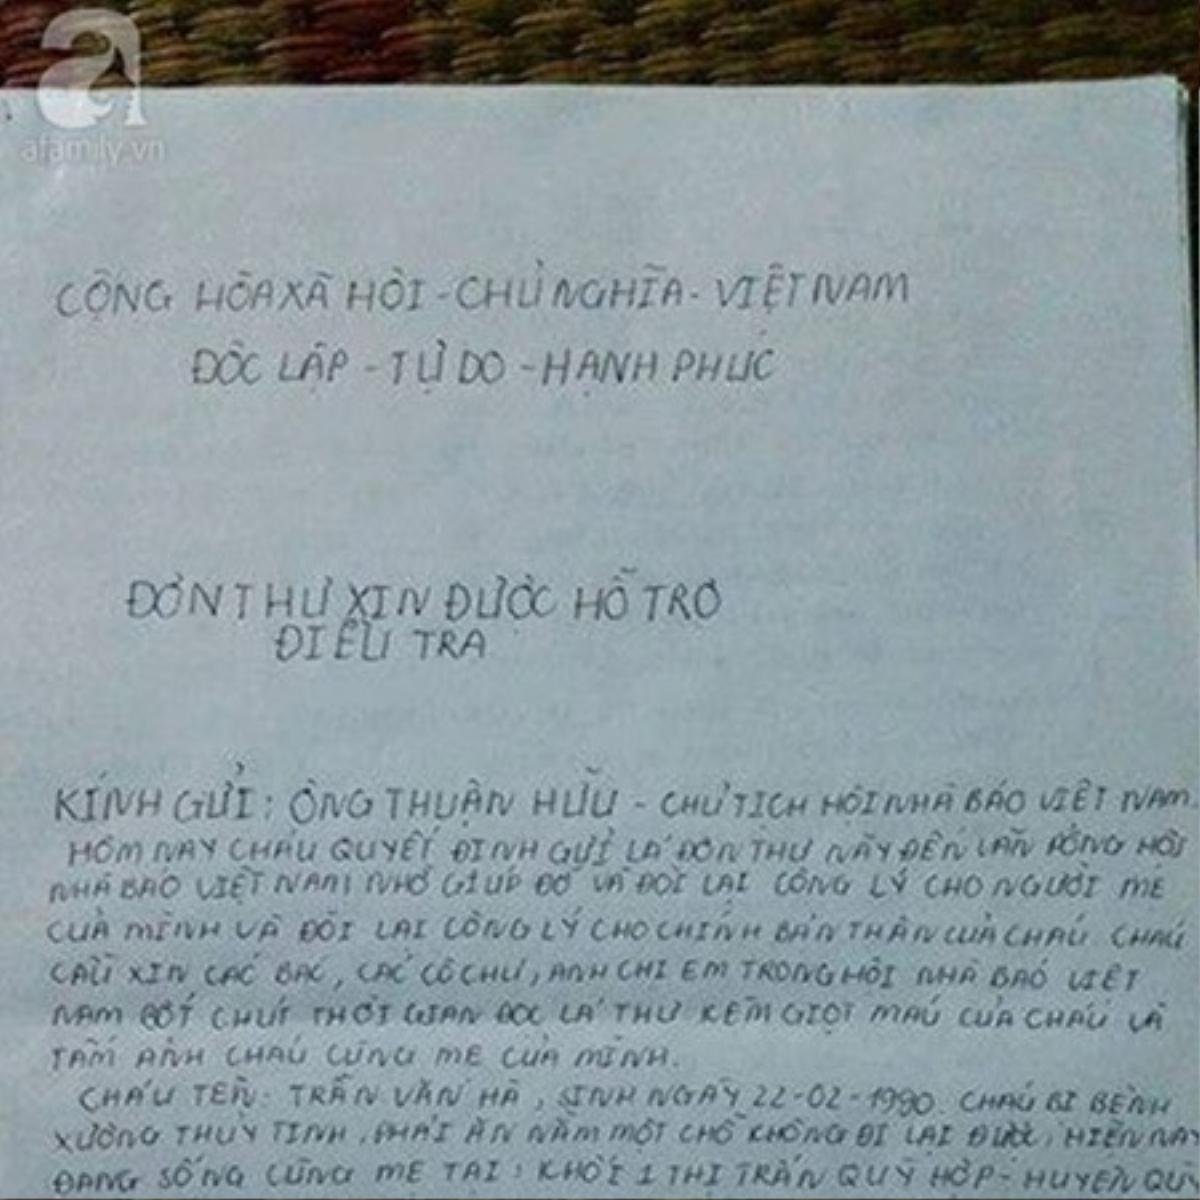 afamily.vn
CỘNG HÒA XÃ HỘI - CHỦ NGHĨA - VIỆT NAM
ĐỘC LẬP - TỰ DO - HẠNH PHÚC
ĐƠN THƯ XIN ĐƯỢC HỖ TRỢ
ĐIỀU TRA
KÍNH GỬI: ÔNG THUẬN HỮU - CHỦ TỊCH HỘI NHÀ BÁO VIỆT NAM
HÔM NAY CHÁU QUYẾT ĐỊNH GỬI LÁ ĐƠN THƯ NÀY ĐẾN VĂN PHÒNG HỘI
NHÀ BÁO VIỆT NAM NHỜ GIÚP ĐỠ VÀ ĐÒI LẠI CÔNG LÝ CHO NGƯỜI MẸ
CỦA MÌNH VÀ ĐÒI LẠI CÔNG LÝ CHO CHÍNH BẢN THÂN CỦA CHÁU. CHÁU
CẦU XIN CÁC BÁC, CÁC CÔ CHÚ, ANH CHỊ EM TRONG HỘI NHÀ BÁO VIỆT
NAM BỚT CHÚT THỜI GIAN ĐỌC LÁ THƯ KÈM GIỌT MÁU CỦA CHÁU VÀ
TẤM ẢNH CHÁU CÙNG MẸ CỦA MÌNH.
CHÁU TÊN: TRẦN VĂN HÀ, SINH NGÀY 22-02-1990. CHÁU BỊ BỆNH
XƯƠNG THỦY TINH, PHẢI ĂN NẰM MỘT CHỖ KHÔNG ĐI LẠI ĐƯỢC, HIỆN NAY
ĐANG SỐNG CÙNG MẸ TẠI: KHỐI 1 THỊ TRẤN QUỲ HỢP - HUYỆN QUỲ